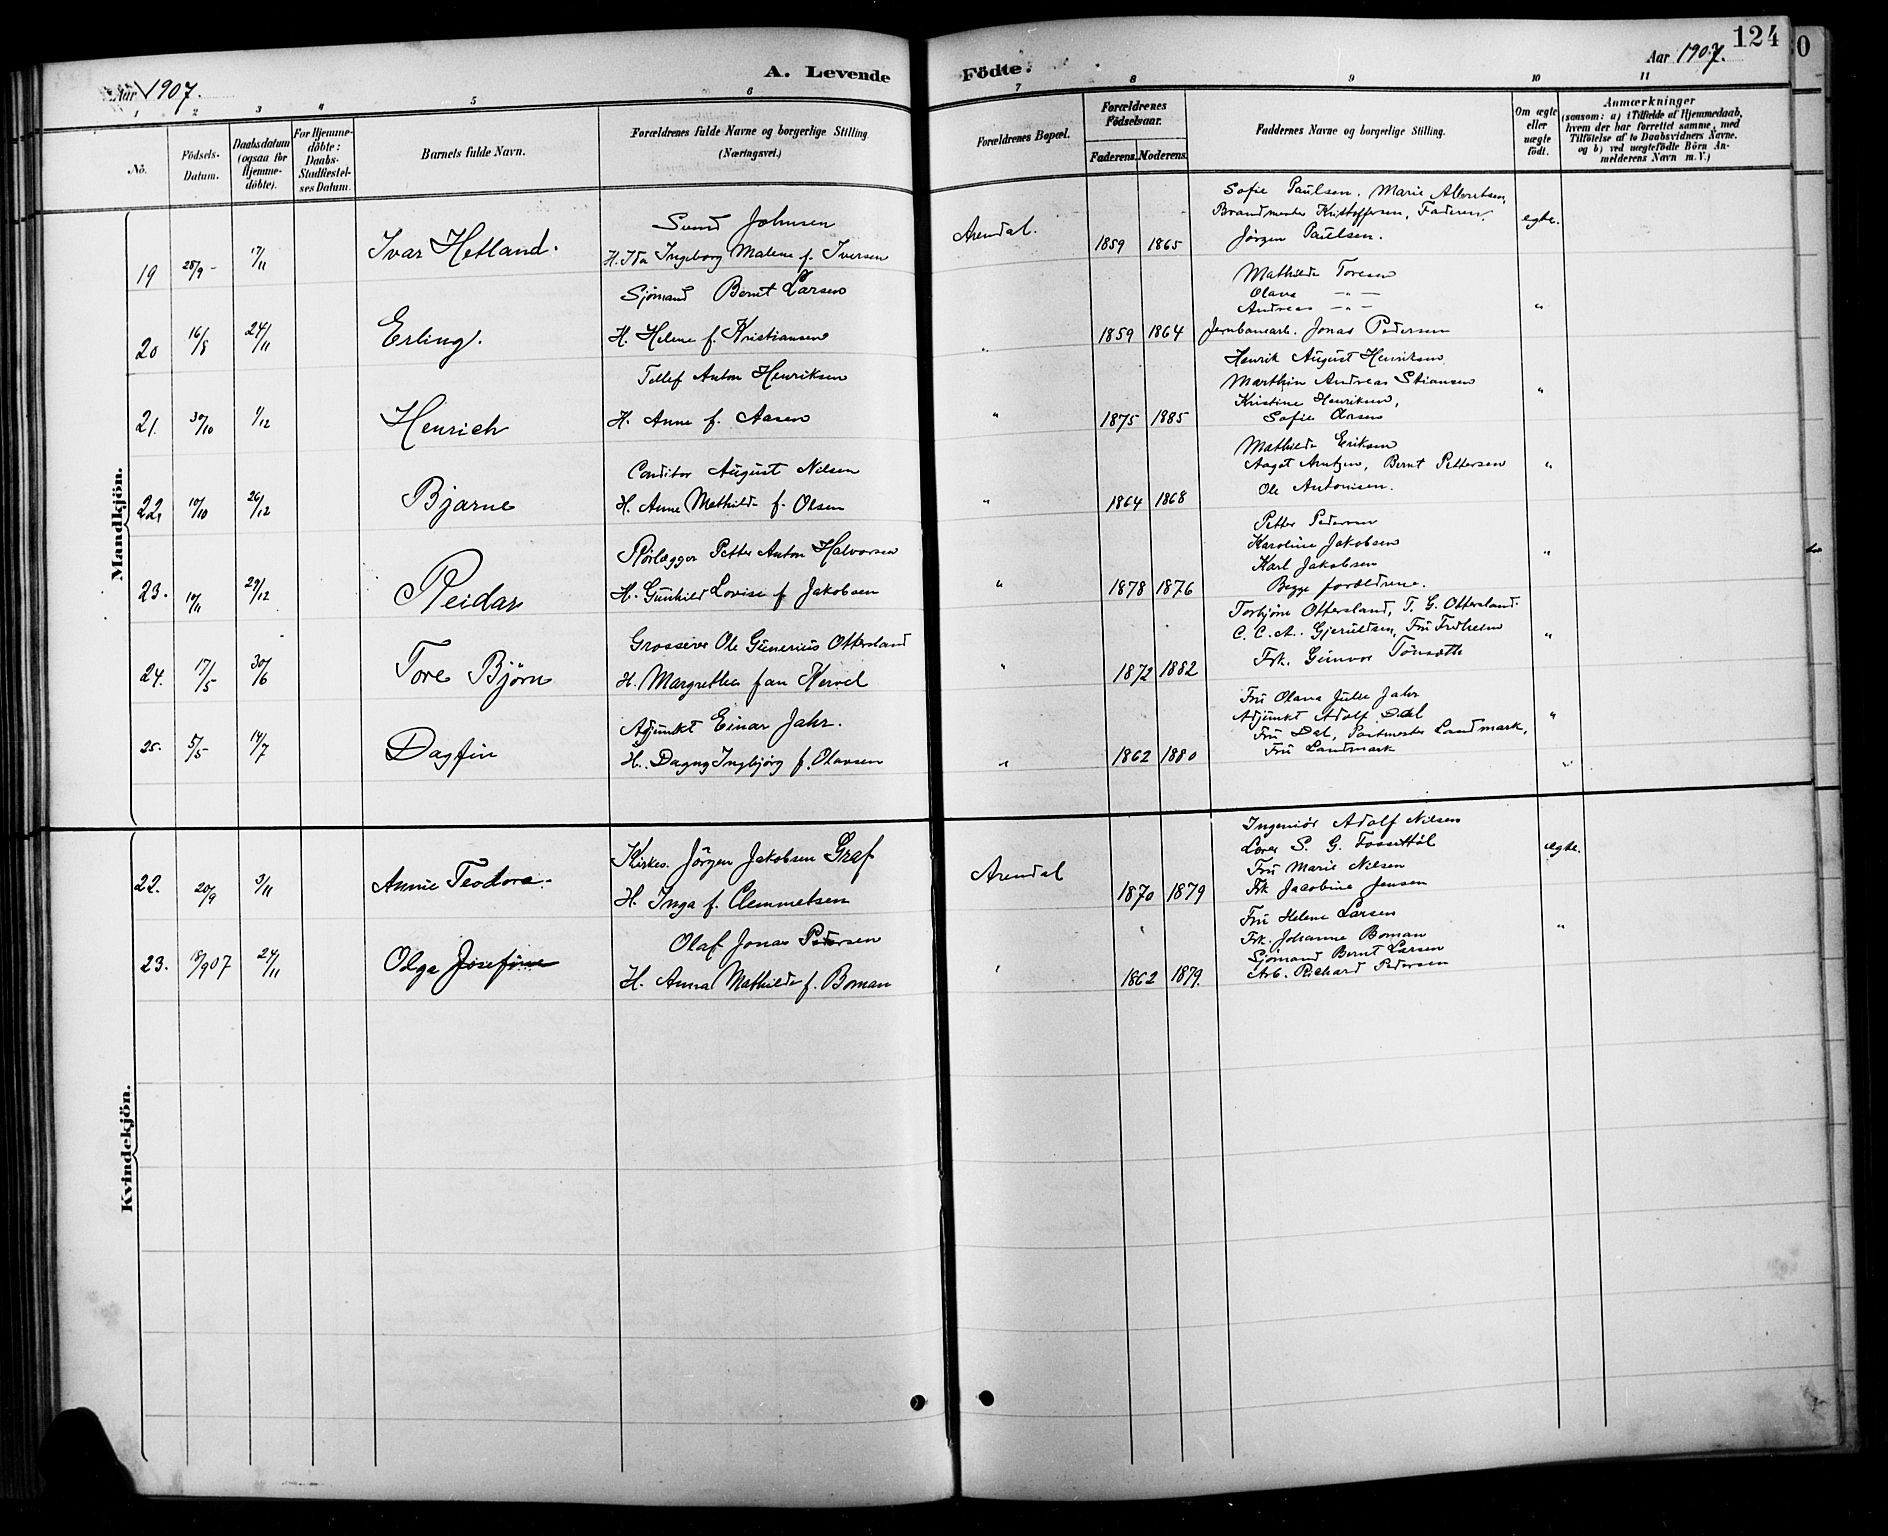 124
0
Aar 1907.
A. Levende
Födte.
Aar 1907.
1
2
3
4
5
6
7
8
9
10
11
No.
Födsels-
Datum.
Daabsdatum
(ogsaa for
Hjemme-
döbte).
For Hjemme-
döbte:
Daabs-
Stadfæstel-
ses Datum.
Barnets fulde Navn.
Forældrenes fulde Navne og borgerlige Stilling
(Næringsvei.)
Forældrenes Bopæl.
Forældrenes
Födselsaar.
Faderens.
Moderens.
Faddernes Navne og borgerlige Stilling.
Om ægte
eller
uægte
födt.
Anmærkninger
(saasom: a) i Tilfælde af Hjemmedaab,
hvem der har forrettet samme, med
Tilföielse af to Daabsvidners Navne.
og b) ved uægtefödte Börn An-
melderens Navn m. V.)
Mandkjön.
19
28/9
17/11
Ivar Hetland.
Svend Johnsen
H. Ida Ingeborg Malene f. Iversen
Arendal.
1859
1865
Sofie Paulsen, Marie Albretsen,
Brandmester Kristoffersen, Faderen
Jörgen Paulsen.
egte.
20
16/8
24/11
Erling.
Sjömand Bernt Larsen
H. Helene f. Kristiansen
"
1859
1864
Mathilde Toresen
Olava — " —
Andreas — " —
Jernbanearb. Jonas Pedersen
"
21.
30/10
1/12
Henrich
Tellef Anton Henriksen
H. Anne f. Aasen
"
1875
1885
Henrik August Henriksen
Marthin Andreas Stiansen
Kristine Henriksen,
Sofie
"
22.
10/10
26/12
Bjarne
Conditor August Nilsen
H. Anne Mathilde f. Olsen
"
1864
1868
Mathilde Eriksen
Aagot Arntzen, Bernt Pettersen
Ole Antonisen.
"
23.
10/11
29/12
Reidar
Rörlægger Petter Anton Halvorsen
H. Gunhild Lovise f Jakobsen
"
1878
1876
Petter Pedersen
Karoline Jakobsen
Karl Jakobsen
Begge forældrene.
"
24.
17/5
30/6
Tore Bjørn
Grosserer Ole Gunerius Ottersland
H. Margrethe f an Kervel
"
1872
1882
Torbjörn Ottersland, T. G. Ottersland.
C. C. A. Gjeruldsen, Fru Fredhelm
Frk. Gunvor Tönseth
"
25.
5/5
14/7
Dagfin
Adjunkt Einar Jahr.
H. Dagny Ingbjørg f. Olavsen
"
1862
1880
Fru Olava Julie Jahr
Adjunkt Adolf Dal
Fru Dal, Postmester Landmark,
Fru Landmark
"
Kvindekjön.
22.
20/9
3/11
Annie Teodora.
Kirkes. Jörgen Jakobsen Graf
H. Inga f. Clemmetsen
Arendal
1870
1879
Ingeniör Adolf Nilsen
Lærer S. G.
Fru Marie Nilsen
Frk Jacobine Jensen
ægte.
23.
/9 07
24/11
Olga Josefine
Olaf Jonas Pedersen
H. Anna Mathilde f. Boman
"
1862
1879.
Fru Helene Larsen
Frk. Johanne Boman
Sjömand Bernt Larsen
Arb. Richard Pedersen
"